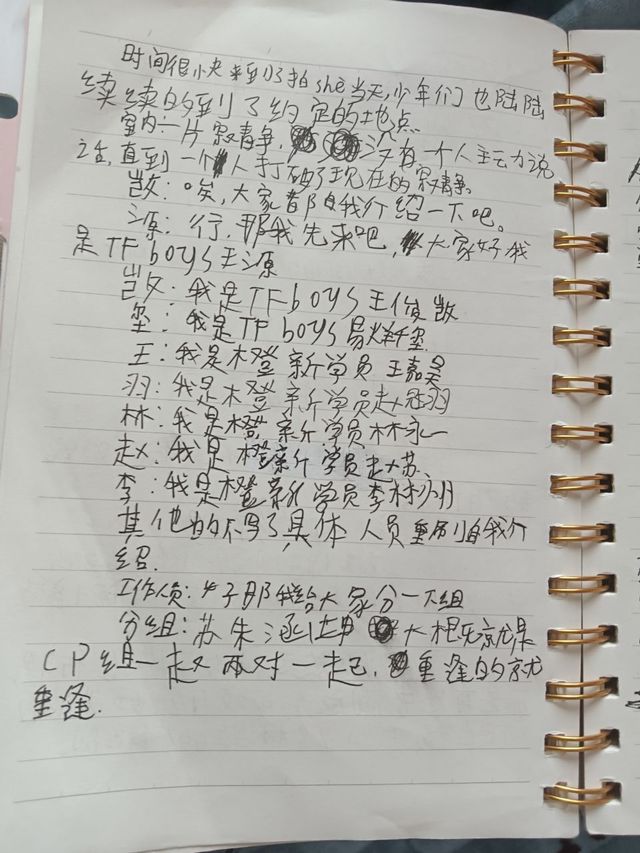 时间很快来到了拍she当天,少年们也陆陆
续续的到了约定的地点
室内一片寂静,没有一个人主动说
话,直到一个人打破了现在的寂静。
凯:唉,大家都自我介绍一下吧。
源:行,那我先来吧,大家好我
是TF boys王源
凯:我是TF boys王俊凯
玺:我是TF boys易烊千玺
王:我是橙新学员王嘉昊
羽:我是橙新学员赵冠羽
林:我是橙新学员林永一
赵:我是橙新学员赵苏
李:我是橙新学员李林
其他的不写了,具体人员自我介
绍.
工作人员:好那我给大家分一下组
分组:苏朱 大概就是
CP组一起两对一起,重逢的就
重逢.